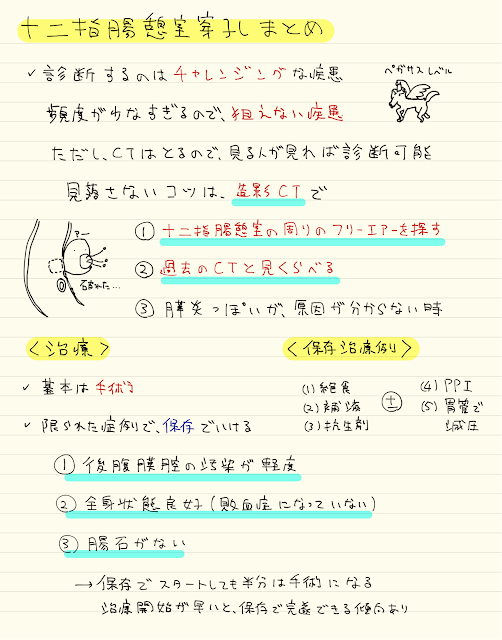 十二指腸憩室穿孔まとめ
✓ 診断するのはチャレンジングな疾患
ペガサスレベル
頻度が少なすぎるので、狙えない疾患
ただし、CTはとるので、見る人が見れば診断可能
見落さないコツは、造影CTで
① 十二指腸憩室の周りのフリーエアーを探す
② 過去のCTと見くらべる
③ 膵炎っぽいが、原因が分からない時
アー
<治療>
<保存治療例>
✓ 基本は手術
✓ 限られた症例で、保存でいける
(1) 絶食
(2) 補液
(3) 抗生剤
±
(4) PPI
(5) 胃管で
減圧
① 後腹膜腔の汚染が軽度
② 全身状態良好(敗血症になっていない)
③ 腸石がない
→ 保存でスタートしても半分は手術になる
治療開始が早いと、保存で完遂できる傾向あり